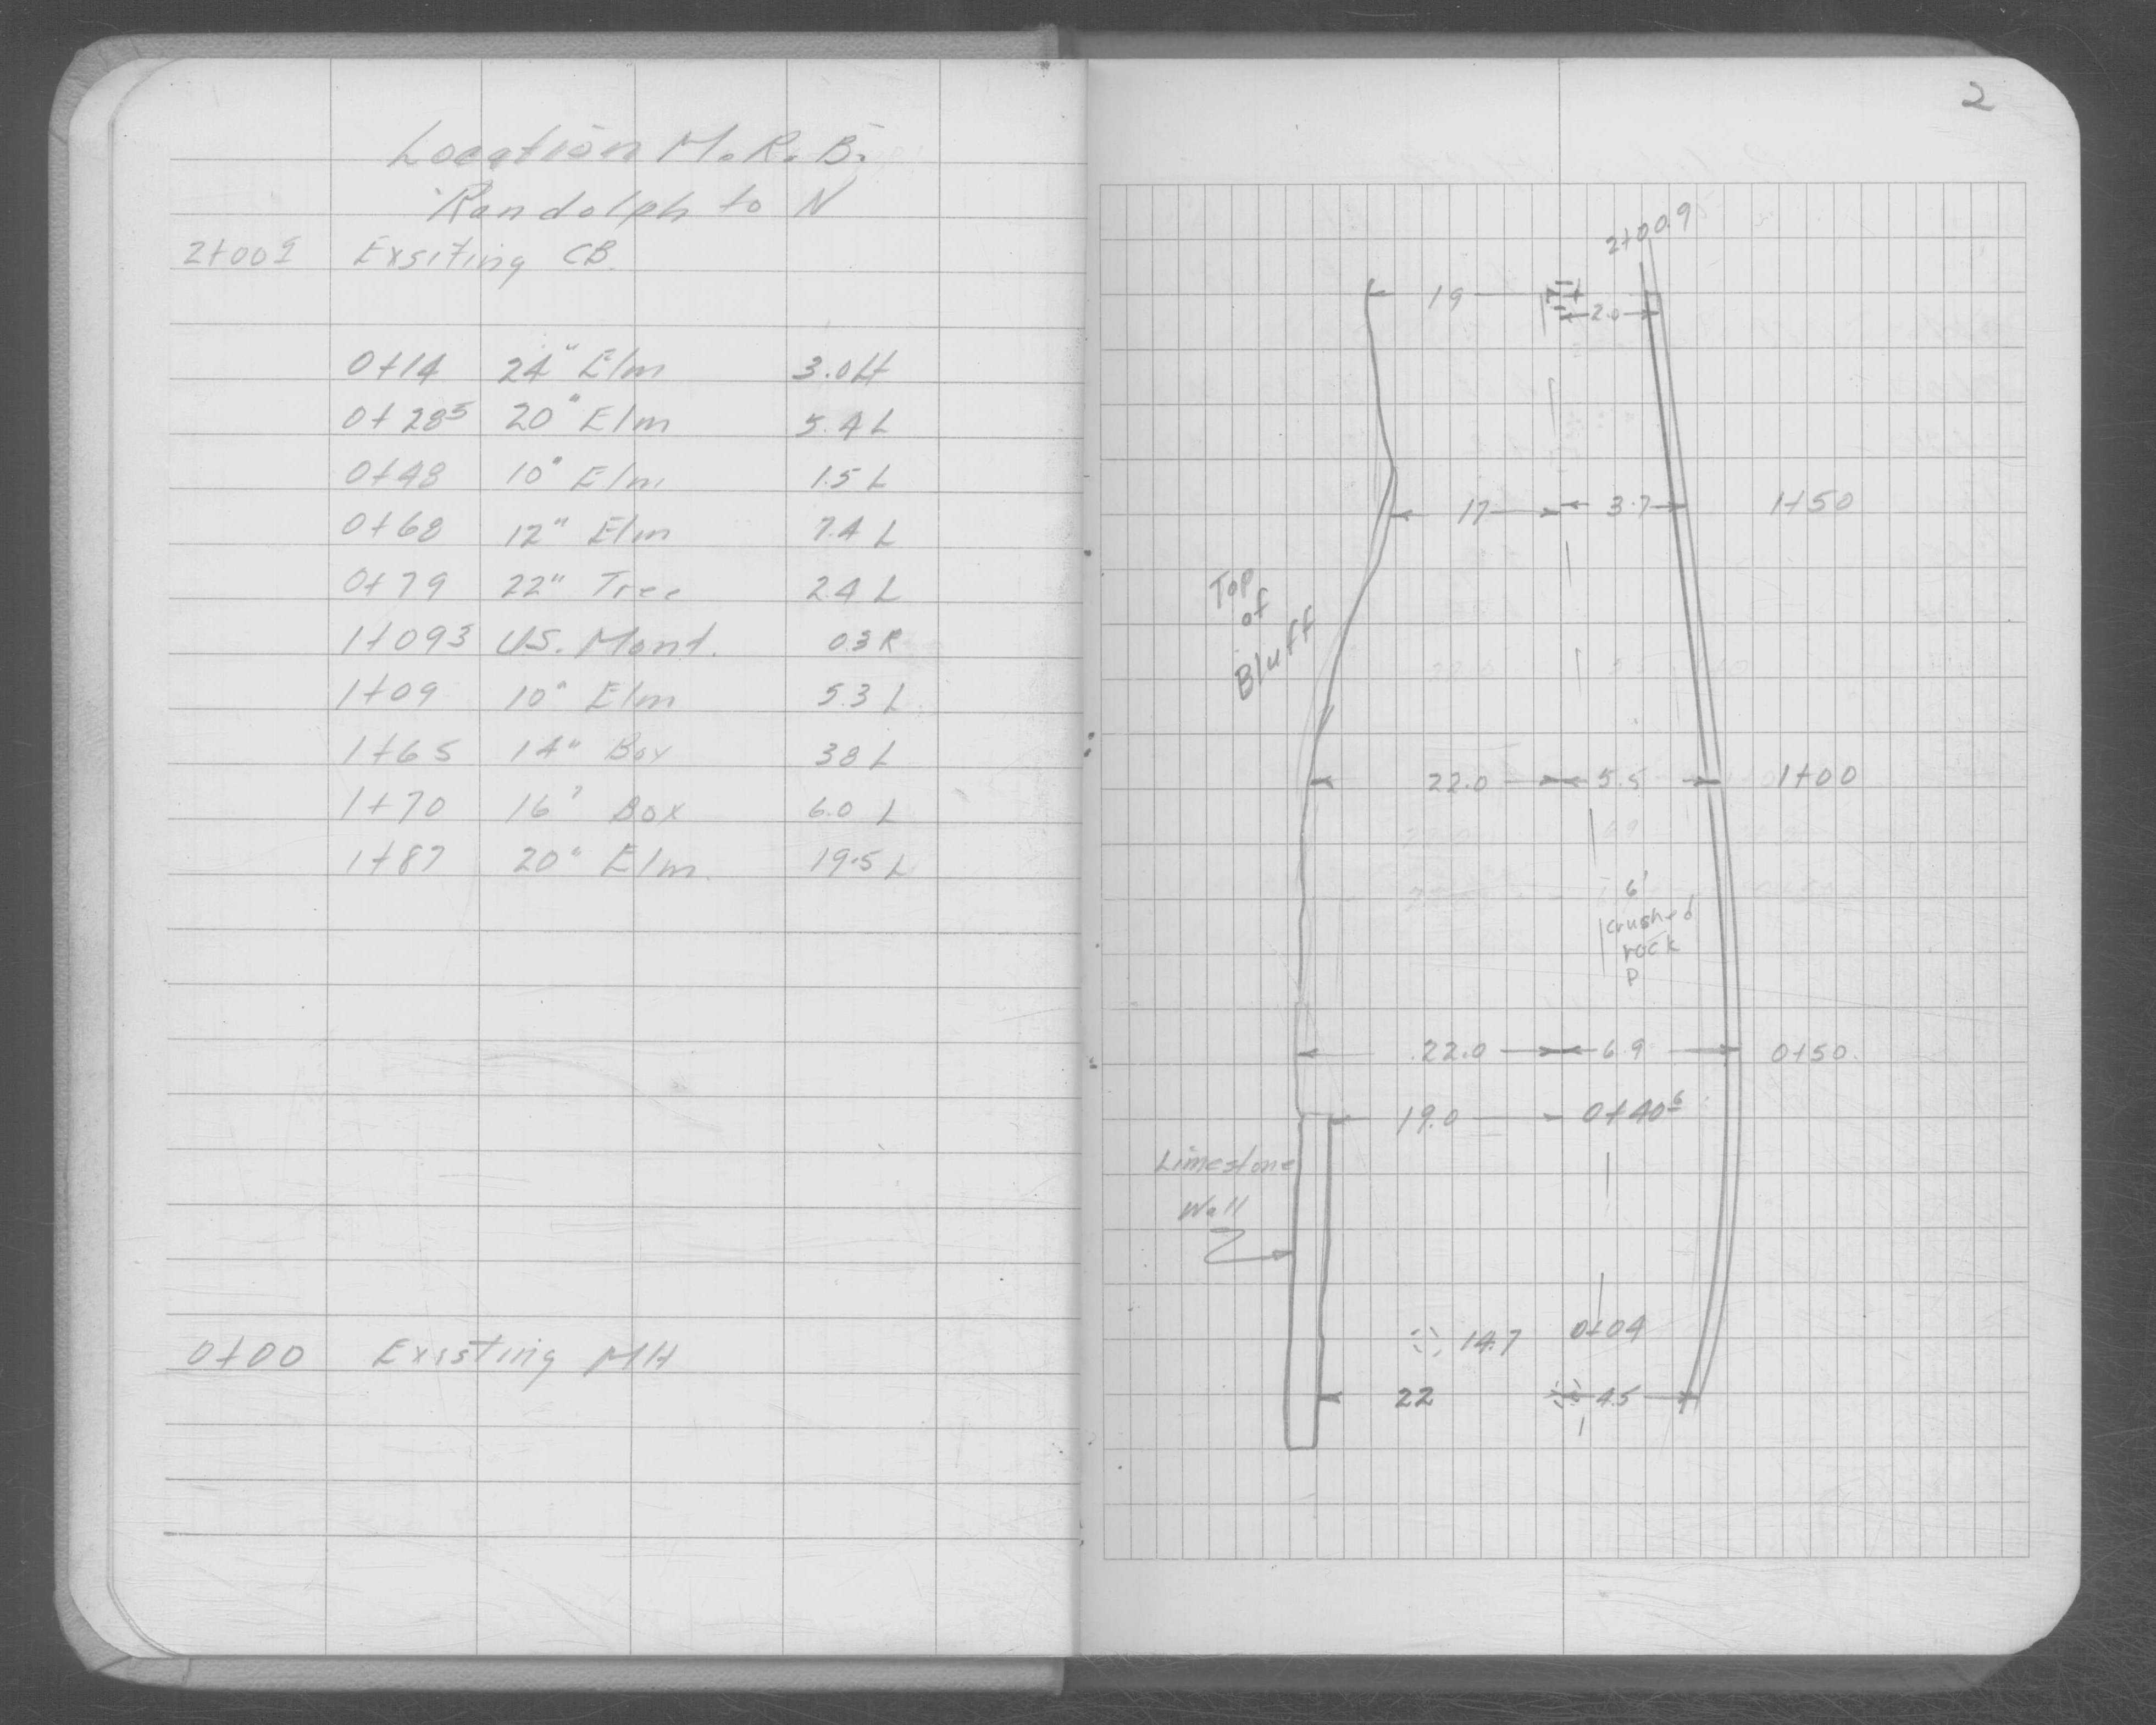 Location M.R.B.
Randolph to N
2+009 Exsiting CB.
0+14 24" Elm 3.0Lt
0+285 20" Elm 5.4 L
0+48 10" Elm 1.5 L
0+68 12" Elm 7.4 L
0+79 22" Tree 2.4 L
1+093 US. Mont. 0.3 R
1+09 10" Elm 5.3 L
1+65 14" Box 3.8 L
1+70 16" Box 6.0 L
1+87 20" Elm. 19.5 L
0+00 Existing MH
2
2+00.9
19 2.0
17 3.7 1+50
Top
of
Bluff
22.0 5.5 1+00
6'
crushed
rock
P
22.0 6.9 0+50.
19.0 0+406
Limestone
Wall
14.7 0+04
22 4.5